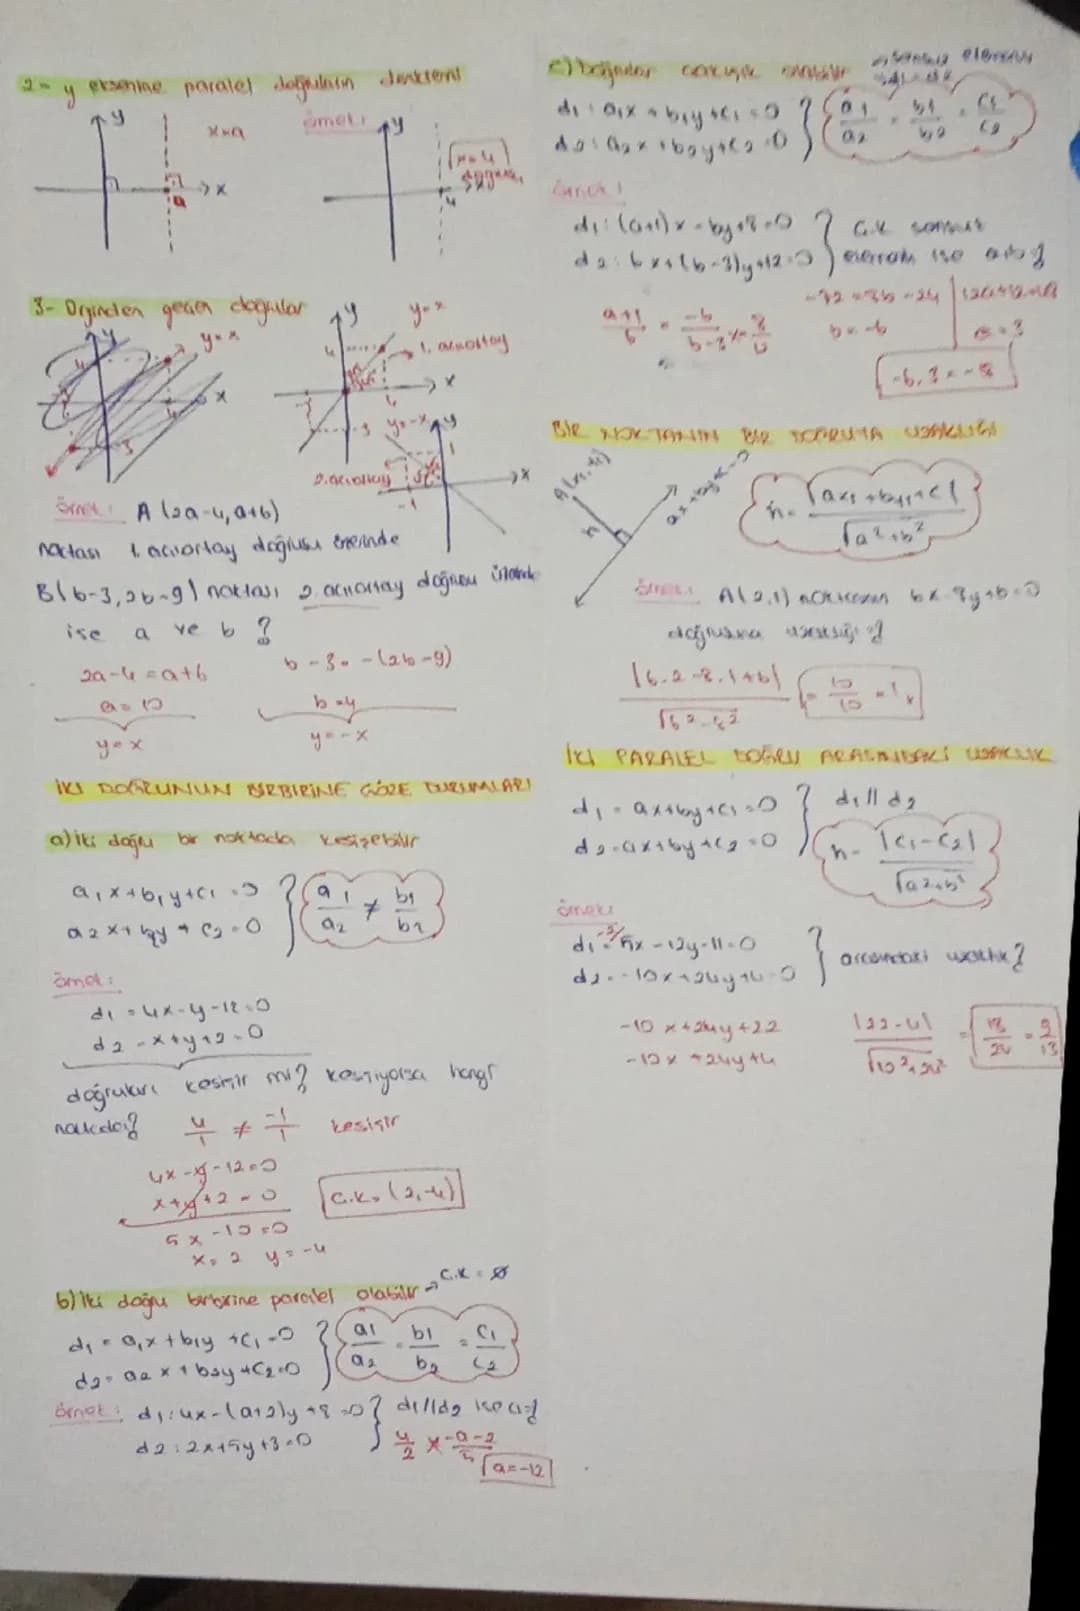 2- y eksenine paralel doğruların denklemi
y
x=a
x
a
örnek:
y
x=4
doğrusu
x
4
3- Orjinden geçen doğrular
y
y=x
x
4
4
3
y
y=x
1. açıortay
4
x
4
-3
y=-x
y
1
2. açıortay
x
-1
örnek: A(2a-4, a+6)
noktası 1. açıortay doğrusu üzerinde
B(b-3, 2b-9) noktası 2. açıortay doğrusu üzerinde
ise a ve b ?
2a-4=a+6
a=10
y=x
b-3=-(2b-9)
b=4
y=-x
İKİ DOĞRUNUN BİRBİRİNE GÖRE DURUMLARI
a) iki doğru bir noktada kesişebilir
a₁x+b₁y+c₁=0
a₂x+b₂y+c₂=0
a₁/a₂ ≠ b₁/b₂
örnek:
d₁=4x-y-12=0
d₂=x+y+2=0
doğruları kesişir mi? kesişiyorsa hangi
noktada?
4/1 ≠ -1/1 kesişir
4x-y-12=0
x+y+2=0
5x-10=0
x=2 y=-4
Ç.K=(2,-4)
b) İki doğru birbirine paralel olabilir → Ç.K=∅
d₁=a₁x+b₁y+c₁=0
d₂=a₂x+b₂y+c₂=0
a₁/a₂ = b₁/b₂ = c₁/c₂
örnek: d₁:4x-(a+2)y+8=0
d₂:2x+5y+3=0
d₁//d₂ ise a=?
4/2 × -a-2/5
a=-12
c) Doğrular çakışık olabilir
→ sonsuz eleman
d₁:a₁x+b₁y+c₁=0
d₂:a₂x+b₂y+c₂=0
a₁/a₂ = b₁/b₂ = c₁/c₂
örnek:
d₁:(a+1)x-by+8=0
d₂:6x+(b-3)y+12=0
Ç.K sonsuz
elemanlı ise a.b=?
a+1/6 = -b/b-3
b=-6
a=3
-6.3=-18
BİR NOKTANIN BİR DOĞRUYA UZAKLIĞI
A(x₁,y₁)
h
ax+by+c=0
h=|ax₁+by₁+c|/√a²+b²
örnek: A(2,1) noktasının 6x-8y+6=0
doğrusuna uzaklığı?
|6.2-8.1+6|
= 10/10 = 1
İKİ PARALEL DOĞRU ARASINDAKİ UZAKLIK
d₁=ax+by+c₁=0
d₂=ax+by+c₂=0
d₁//d₂
h=|c₁-c₂|/√a²+b²
örnek:
d₁=5x-12y-11=0
d₂=-10x+24y+4=0
arasındaki uzaklık?
-10x+24y+22
-10x+24y+4
|22-4|/√10²+24²
= 18/26 = 9/13